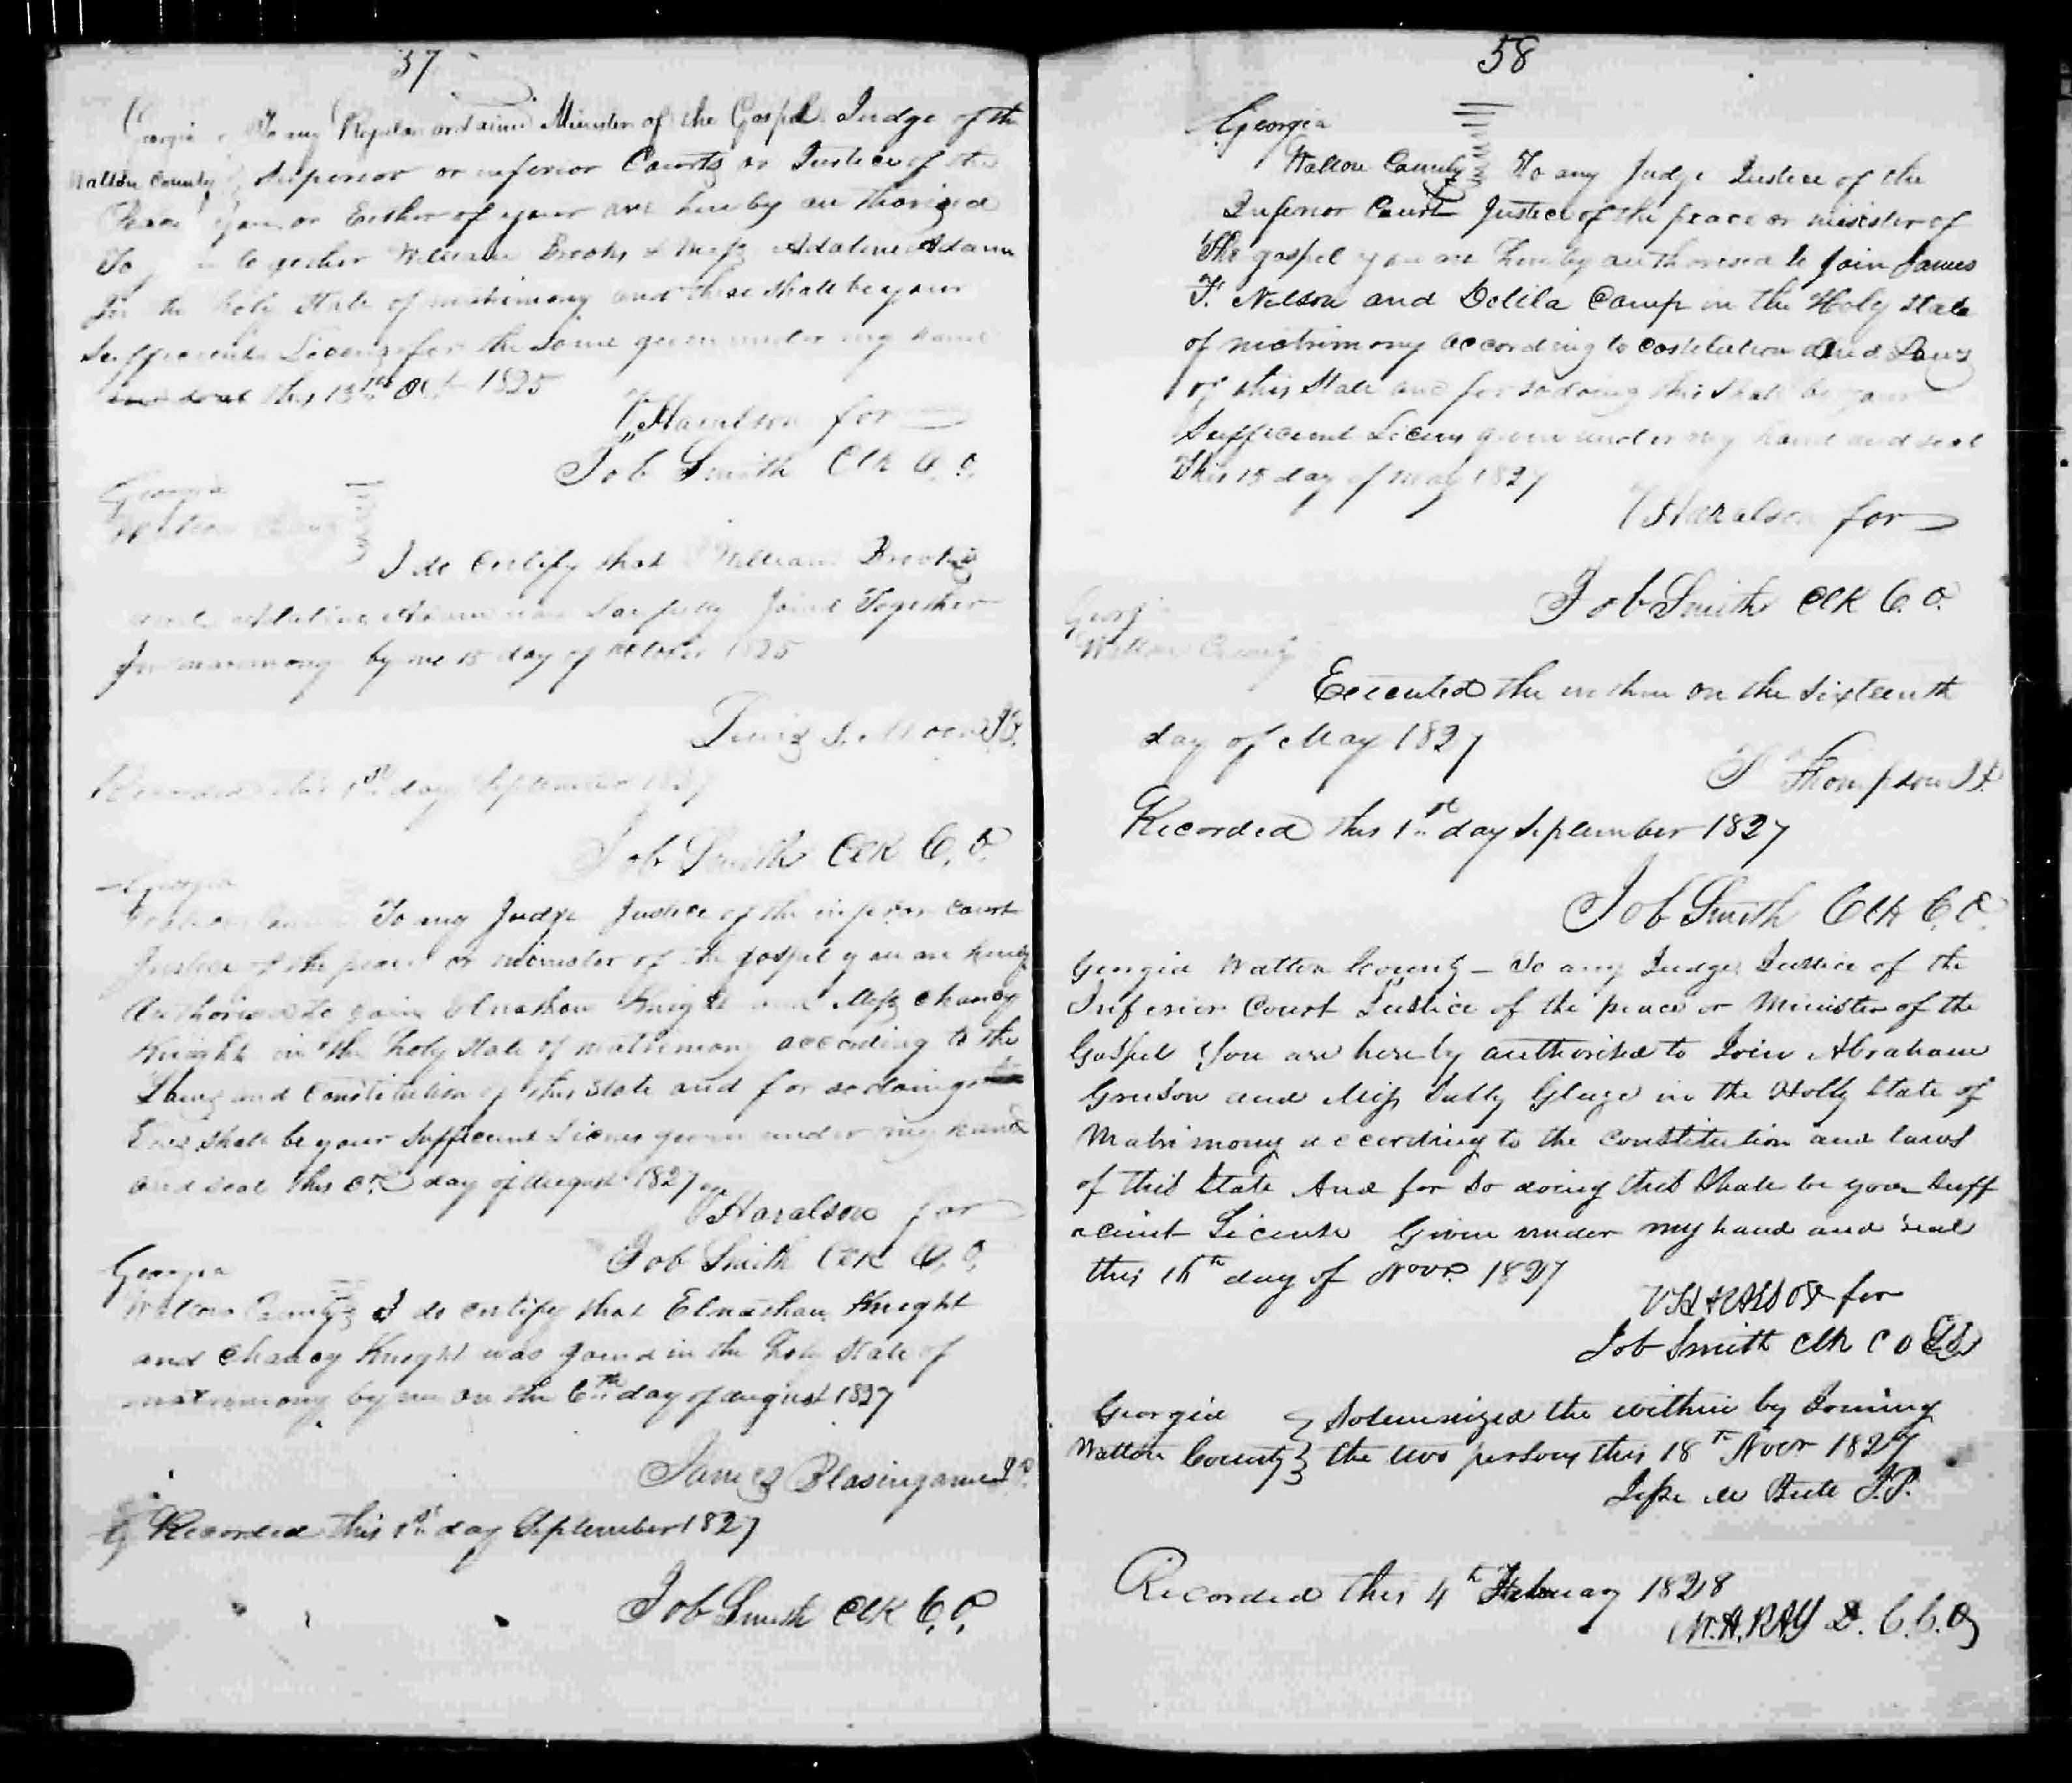 37
Georgia To any Regular ordained Minister of the Gospel Judge of the
Walton County Superior or inferior Courts or Justice of the
Peace you or Either of your are hereby authorized
To together William Brooks & Miss Adaline Adams
In the holy State of matrimony and these shall be your
Sufficient License for the Same given under my hand
and seal this 13th Oct 1825
V Haralson for
Job Smith Clk C. O.
Georgia
Walton County
I do Certify that William Brooks
and Adaline Adams was Lawfully Joined Together
In matrimony by me 15 day of October 1825
S. Moore J.P.
Recorded this 1st day September 1827
Job Smith Clk C. O.
Georgia
Walton County To any Judge Justice of the inferior Court
Justice of the peace or minister of the gospel you are hereby
Authorised to join Elnathan Knight and Miss Chancy
Knight in the holy State of matrimony according to the
Laws and Constitution of this State and for so doing
this shall be your Sufficient Licens given under my hand
and seal this day of August 1827
V Haralson for
Job Smith Clk C. O.
Georgia
Walton County I do certify that Elnathan Knight
and Chancy Knight was joind in the holy State of
matrimony by me on the 6th day of august 1827
James Blasingame J.P.
Recorded this 1st day September 1827
Job Smith Clk C. O.
58
Georgia
Walton County To any Judge Justice of the
Inferior Court Justice of the peace or minister of
The gospel you are hereby authorised to join James
T. Nelson and Delila Camp in the Holy State
of matrimony according to costitution and Laws
of this State and for so doing this shall be your
Sufficient Licens given under my hand and seal
This 15 day of May 1827
V Haralson for
Job Smith Clk C. O.
Georgia
Walton County
Executed the within on the Sixteenth
day of May 1827
Thompson J.P.
Recorded this 1st day September 1827
Job Smith Clk C. O.
Georgia Walton County – To any Judge Justice of the
Inferior Court Justice of the peace or Minister of the
Gospel You are hereby authorised to Join Abraham
and Miss in the Holly State of
Matrimony according to the Constitution and laws
of this State And for So doing this Shall be your Suff
acient License Given under my hand and seal
this 16th day of Novr 1827
V HARALSON for
Job Smith Clk C O
Georgia Solemnized the within by Joining
Walton County the two persons this 18th Novr 1827
Jesse M J.P.
Recorded this 4th February 1828
N.A. RAY D. C. C. O